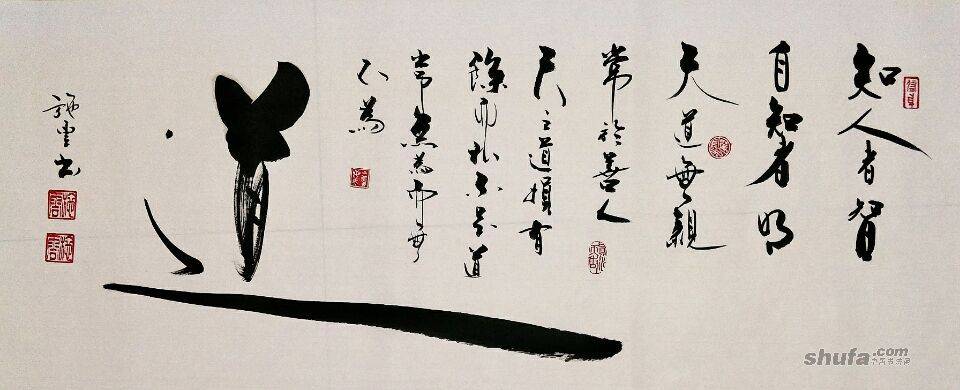 知人者智
自知者明
天道無親
常於善人
天之道損有
餘而补不足道
常無為而無
不為
道
shufa.com